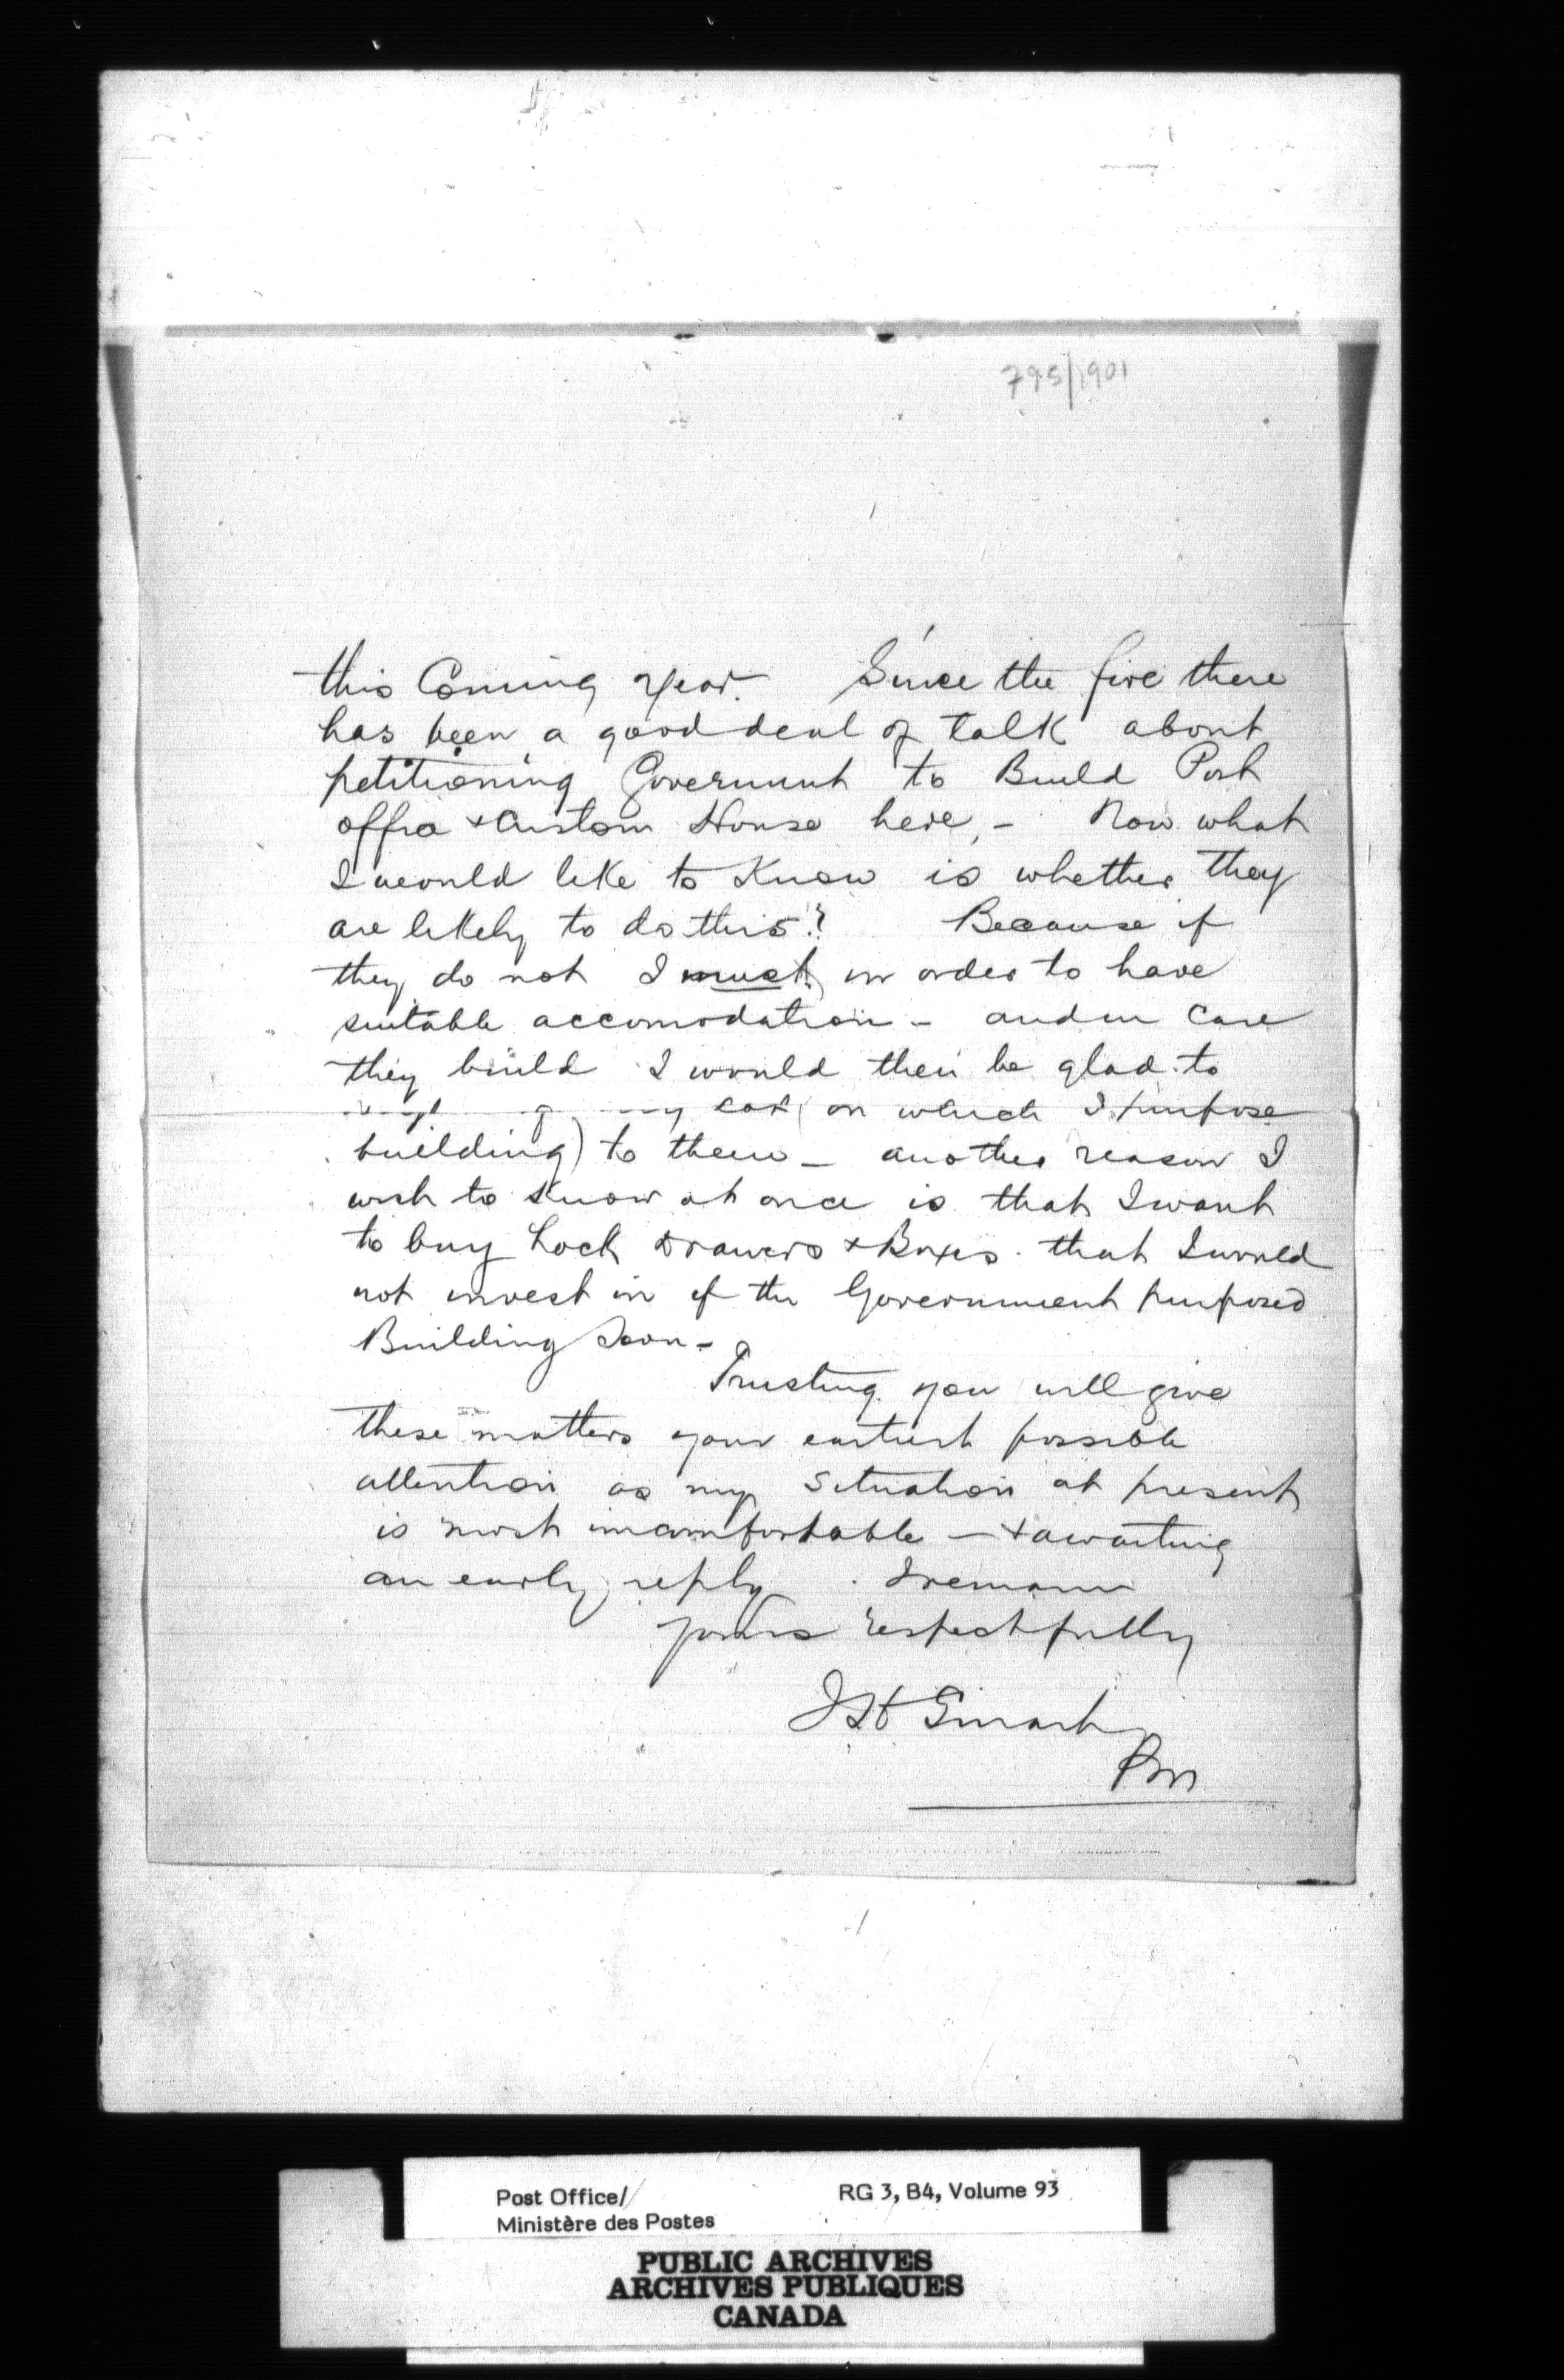 795/1901
this Coming year. Since the fire there
has been a good deal of talk about
petitioning Government to Build Post
office & Custom House here, - Now what
I would like to Know is whether they
are likely to do this? Because if
they do not I must, in order to have
suitable accomodation - and in case
they build I would then be glad to
my lot (on which I purpose
building) to them - another reason I
wish to know at once is that I want
to buy Lock Drawers & Boxes that I would
not invest in if the Government purposed
Building Soon -
Trusting you will give
these matters your earliest possible
attention as my situation at present
is most uncomfortable - & awaiting
an early reply. I remain
yours respectfully
Pm
Post Office/
Ministère des Postes
RG 3, B4, Volume 93
PUBLIC ARCHIVES
ARCHIVES PUBLIQUES
CANADA